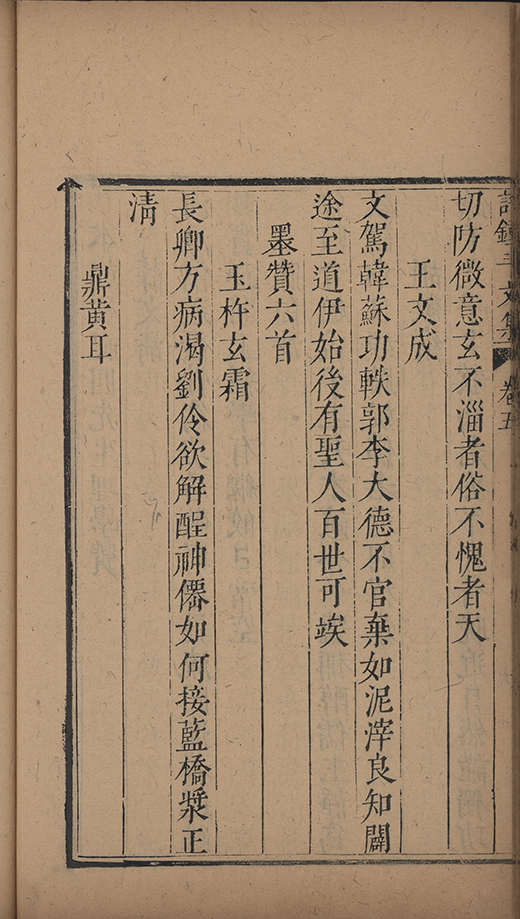 鐘文集 卷五
切防微意玄不淄者俗不愧者天
王文成
文駕韓蘇功軼郭李大德不官棄如泥滓良知闢
途至道伊始後有聖人百世可竢
墨贊六首
玉杵玄霜
長卿方病渴劉伶欲解酲神僊如何接藍橋漿正
淸
鼎黃耳